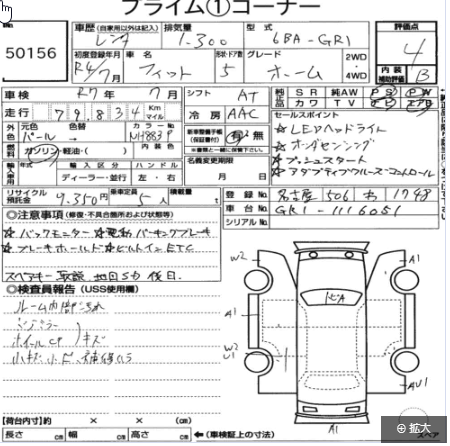 プライム①コーナー
50156
車歴 (自家用以外は記入) レンタ
排気量 1.300
型式 6BA-GR1
評価点 4
初度登録年月 R4/7月
車名 フィット
形状・ドア数 5
グレード ホーム
2WD
4WD
内装補助評価 B
車検 R7年7月
シフト AT
SR 純AW PS PW
革 カワ TV
走行 79,834 Km マイル
冷房 AAC
セールスポイント
☆LEDヘッドライト
☆ホンダセンシング
☆プッシュスタート
☆アダプティブクルーズコントロール
外色 元色 パール
色替
カラーNo NH883P
内色
新車整備手帳 (保証書付) 有・無
※書類と一緒に保管して下さい。
燃料 ガソリン・軽油・( )
名義変更期限 月 日
輸入車用 年式 輸入区分 ハンドル
ディーラー・並行 左・右
リサイクル預託金 9,350円
乗車定員 5人
積載量 t
登録No 名古屋 506 わ 1748
車台No GR1-1116051
シリアルNo
◎注意事項 (修復・不具合箇所および状態等)
☆バックモニター ☆電動パーキングブレーキ
☆ブレーキホールド ☆ビルトインETC
スペアキー 取説 地図SD 後日.
◎検査員報告 (USS使用欄)
ルーム内部汚れ
ホイールCP キズ
小キズ 小凹 補修有
W2
A1
A1
A1
W2
U1
A1
AU1
A1
ビA
【荷台内寸】 約 × ×
長さ cm 幅 cm 高さ cm ←(車検証上の寸法)
スペア
拡大